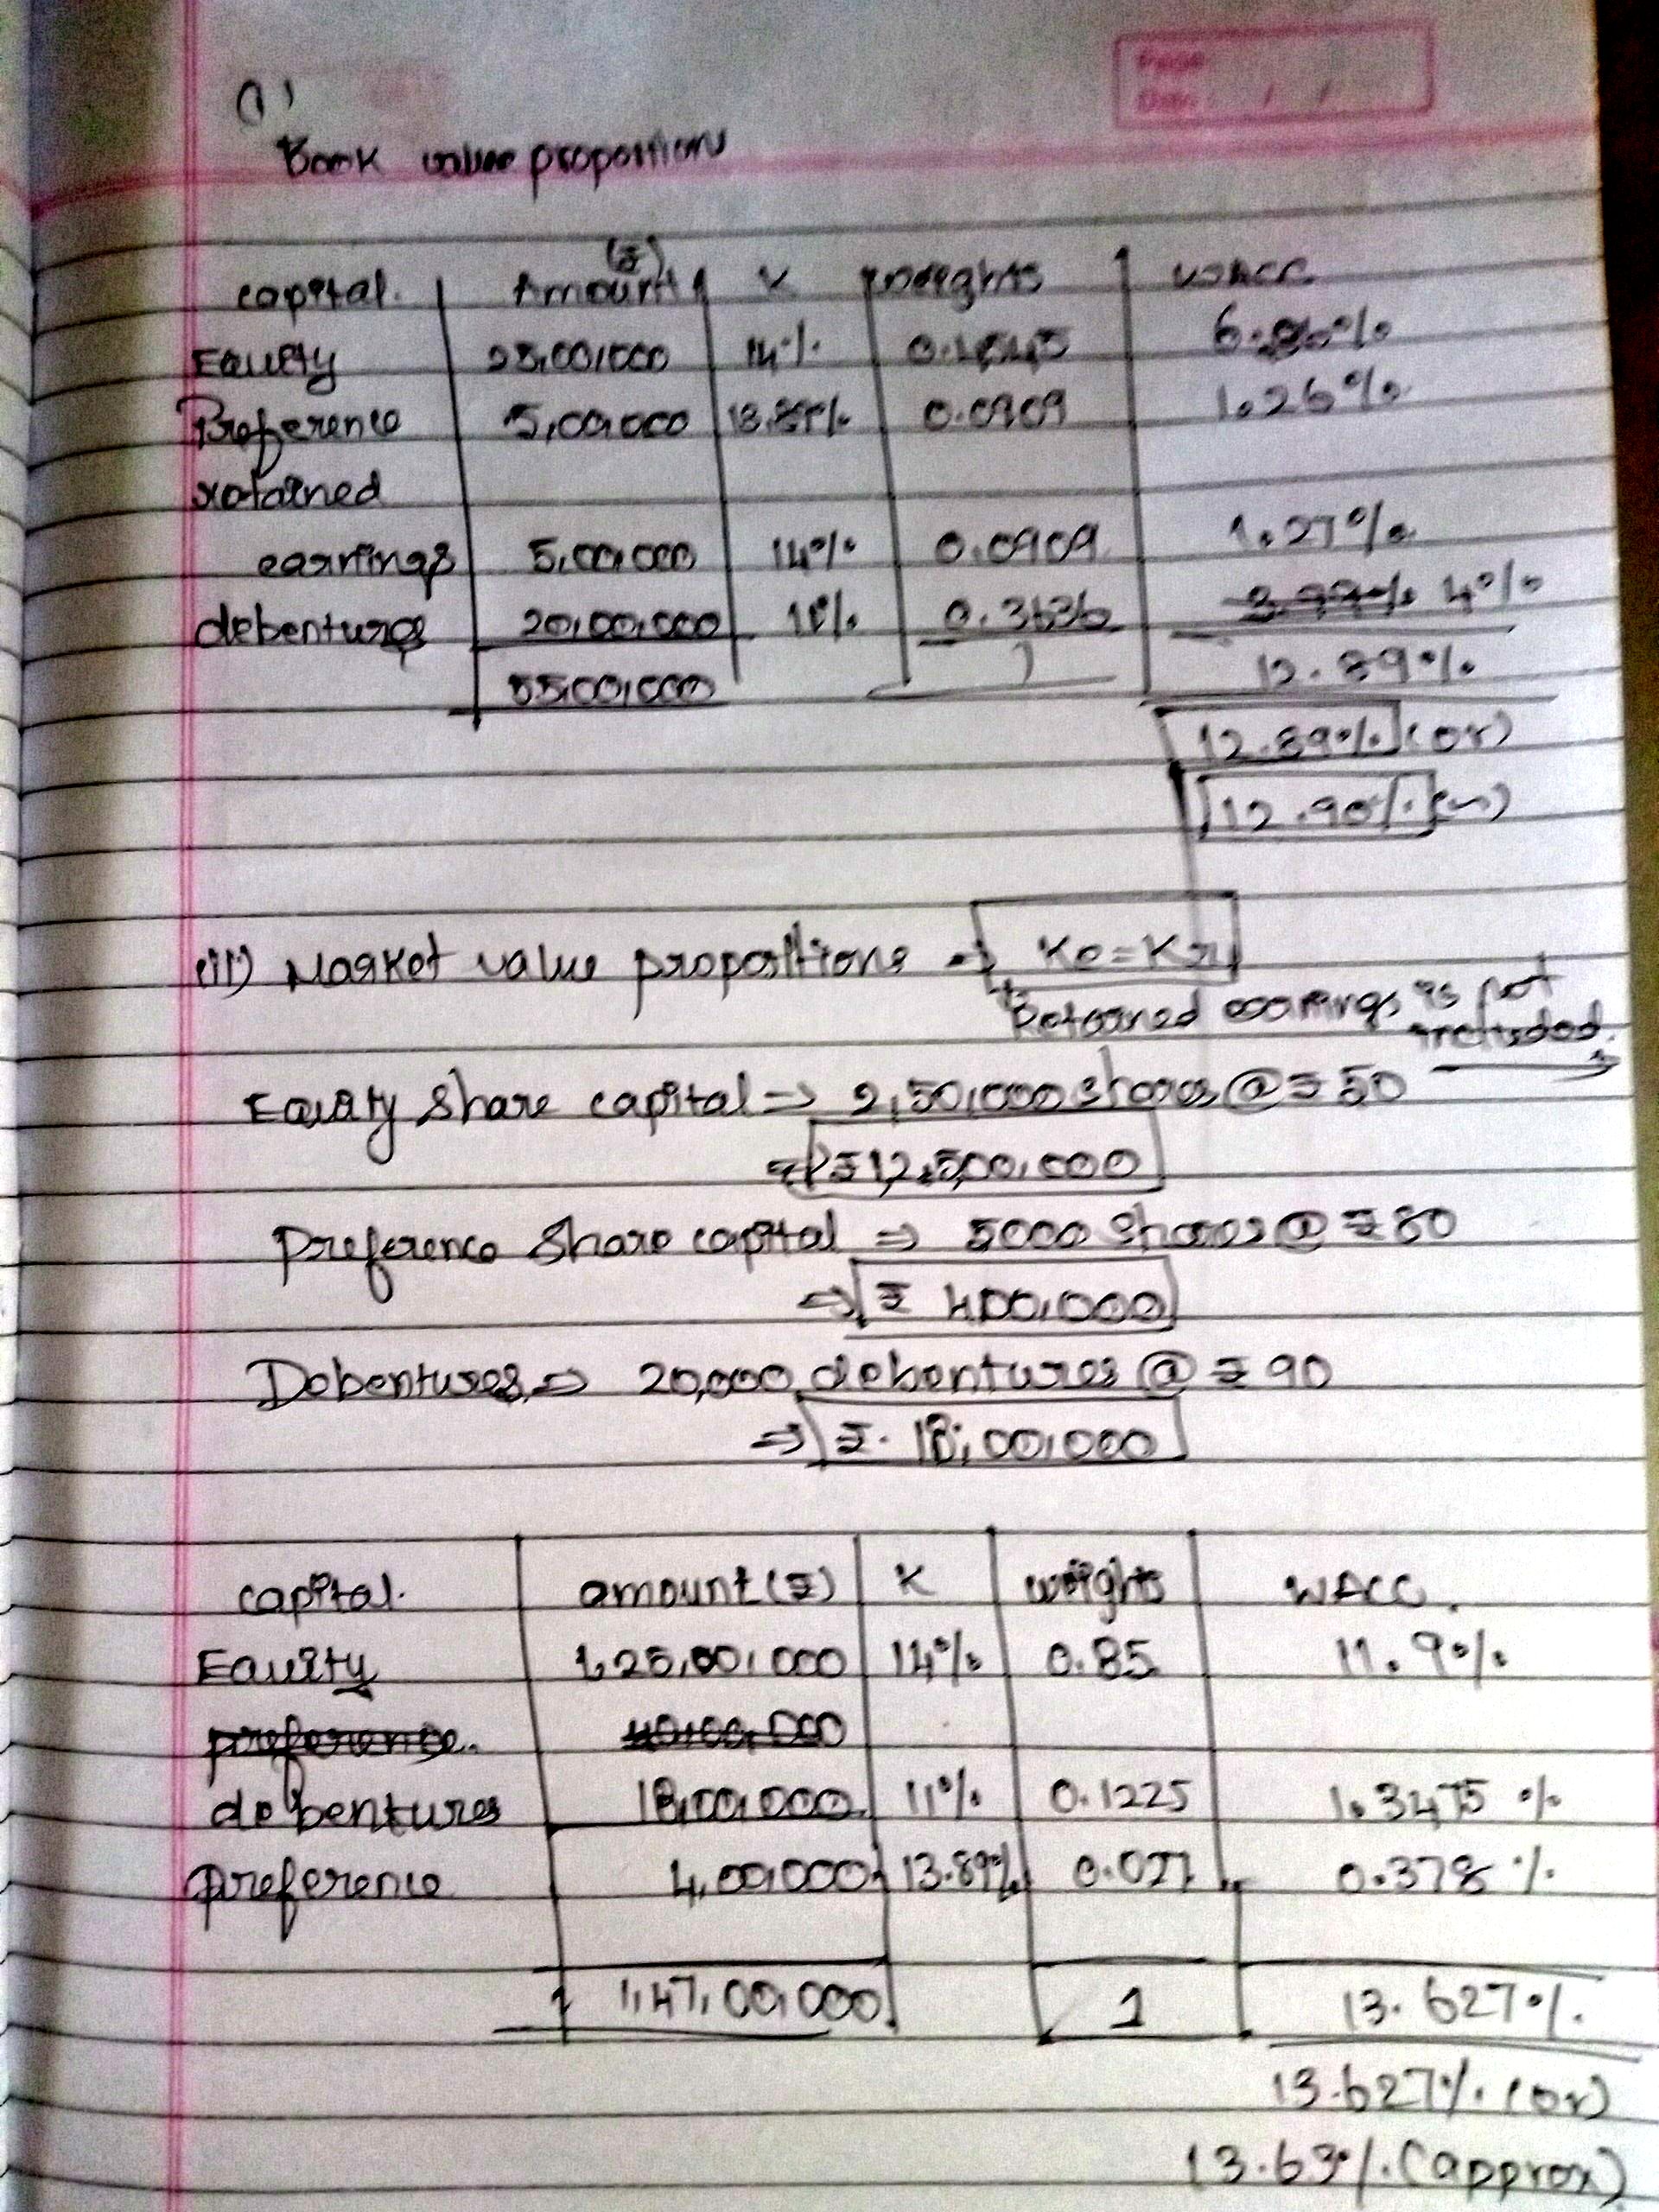 Page
Date: / /
Book value proportions
capital. Amount (₹) K weights WACC
Equity 25,00,000 14% 0.4545 6.36%
Preference 5,00,000 13.89% 0.0909 1.26%
retained
earnings 5,00,000 14% 0.0909 1.27%
debentures 20,00,000 11% 0.3636 3.99% 4%
55,00,000 1 12.89%
12.89% (or)
12.90% (~)
(ii) Market value propositions → Ke=Kr
Retained earnings is not
included.
Equity share capital ⇒ 2,50,000 shares @ ₹ 50
⇒ ₹12,500,000
Preference Share capital ⇒ 5000 Shares @ ₹ 80
⇒ ₹ 400,000
Debentures ⇒ 20,000 debentures @ ₹ 90
⇒ ₹. 18,00,000
capital. amount (₹) K weights WACC.
Equity 1,25,00,000 14% 0.85 11.9%
preference. 40,00,000
debentures 18,00,000 11% 0.1225 1.3475 %
preference 4,00,000 13.89% 0.027 0.378 %
1,47,00,000 1 13.627%
13.627% (or)
13.63% (approx)